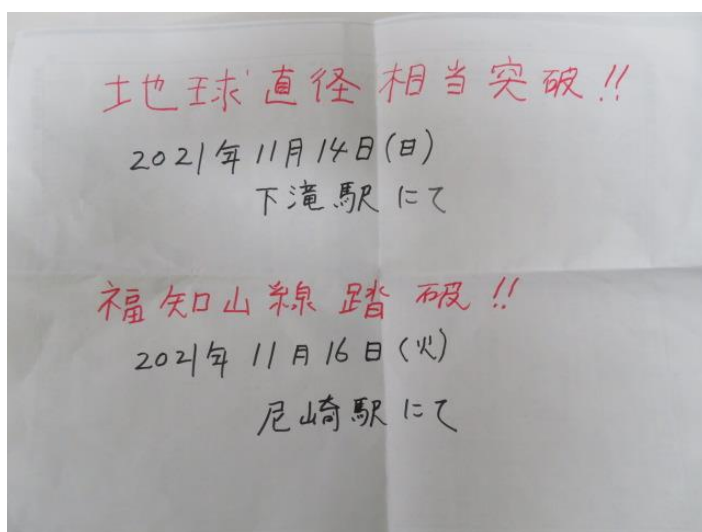 地球直径相当突破!!
2021年11月14日(日)
下滝駅にて
福知山線踏破!!
2021年11月16日(火)
尼崎駅にて